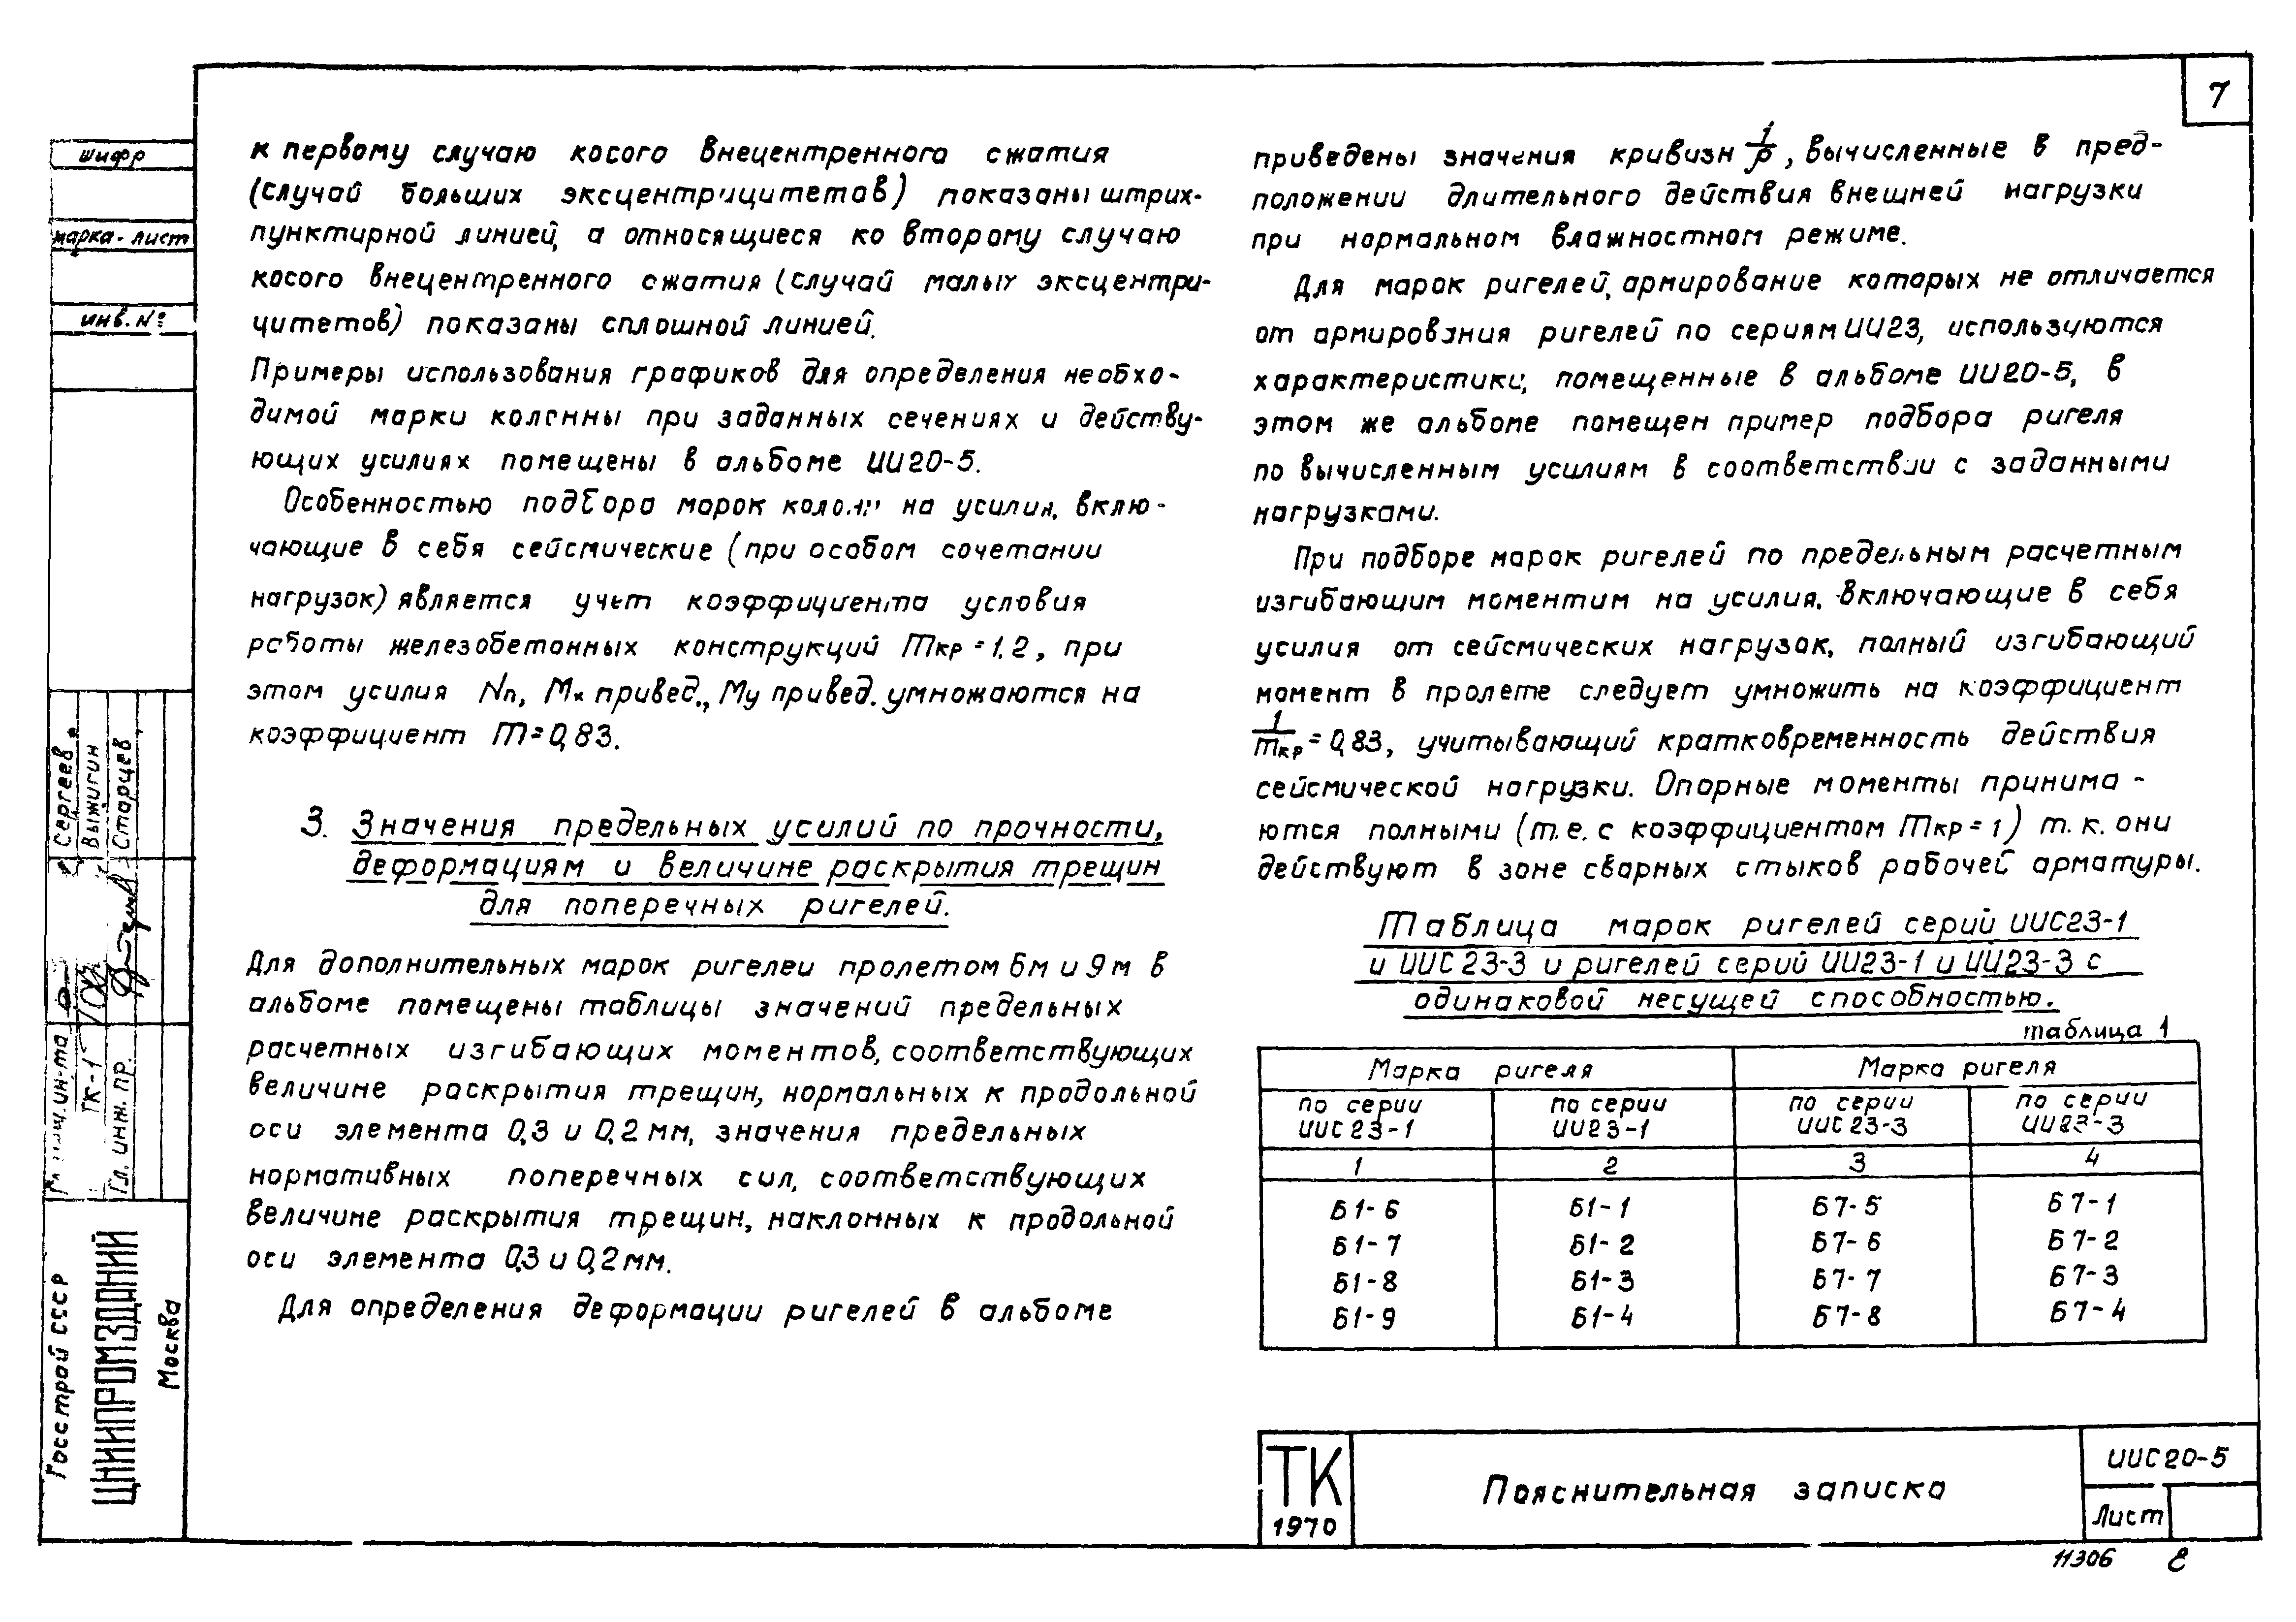 7
шифр
марка-лист
инв. №
Сергеев
Выжигин
Старцев
ТК-1
Гл. инж. пр.
Госстрой СССР
ЦНИИПРОМЗДАНИЙ
Москва
к первому случаю косого внецентренного сжатия
(случай больших эксцентрицитетов) показаны штрих-
пунктирной линией, а относящиеся ко второму случаю
косого внецентренного сжатия (случай малых эксцентри-
цитетов) показаны сплошной линией.
Примеры использования графиков для определения необхо-
димой марки колонны при заданных сечениях и действу-
ющих усилиях помещены в альбоме ИИ20-5.
Особенностью подбора марок колонн на усилия, вклю-
чающие в себя сейсмические (при особом сочетании
нагрузок) является учет коэффициента условия
работы железобетонных конструкций mкр = 1.2, при
этом усилия Nп, Mх привед., Mу привед. умножаются на
коэффициент m = 0,83.
3. Значения предельных усилий по прочности,
деформациям и величине раскрытия трещин
для поперечных ригелей.
Для дополнительных марок ригелей пролетом 6м и 9м в
альбоме помещены таблицы значений предельных
расчетных изгибающих моментов, соответствующих
величине раскрытия трещин, нормальных к продольной
оси элемента 0,3 и 0,2 мм, значения предельных
нормативных поперечных сил, соответствующих
величине раскрытия трещин, наклонных к продольной
оси элемента 0,3 и 0,2 мм.
Для определения деформации ригелей в альбоме
приведены значения кривизн 1/ρ, вычисленные в пред-
положении длительного действия внешней нагрузки
при нормальном влажностном режиме.
Для марок ригелей, армирование которых не отличается
от армирования ригелей по сериям ИИ23, используются
характеристики, помещенные в альбоме ИИ20-5, в
этом же альбоме помещен пример подбора ригеля
по вычисленным усилиям в соответствии с заданными
нагрузками.
При подборе марок ригелей по предельным расчетным
изгибающим моментим на усилия, включающие в себя
усилия от сейсмических нагрузок, полный изгибающий
момент в пролете следует умножить на коэффициент
1/mкр = 0,83, учитывающий кратковременность действия
сейсмической нагрузки. Опорные моменты принима-
ются полными (т.е. с коэффициентом mкр = 1) т.к. они
действуют в зоне сварных стыков рабочей арматуры.
Таблица марок ригелей серий ИИС23-1
и ИИС23-3 и ригелей серий ИИ23-1 и ИИ23-3 с
одинаковой несущей способностью.
таблица 1
Марка ригеля Марка ригеля
по серии ИИС23-1 по серии ИИ23-1 по серии ИИС23-3 по серии ИИ23-3
1 2 3 4
Б1-6 Б1-1 Б7-5 Б7-1
Б1-7 Б1-2 Б7-6 Б7-2
Б1-8 Б1-3 Б7-7 Б7-3
Б1-9 Б1-4 Б7-8 Б7-4
ТК
1970
Пояснительная записка
ИИС20-5
Лист
11306 8